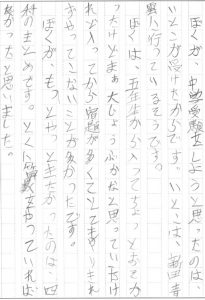 ぼくが、中学受験をしようと思ったのは、
いとこが受けたからです。いとこは、
に行っているそうです。
ぼくは、五年生から入ってちょっとおそか
ったけどまあ大じょうぶかなと思っていたけ
れど入ってから宿題が多くてとても
やってこないことが多かったです。
ぼくが、もっとやっときたかったのは、四
科のまとめです。とくに をやっていれば
よかったと思いました。